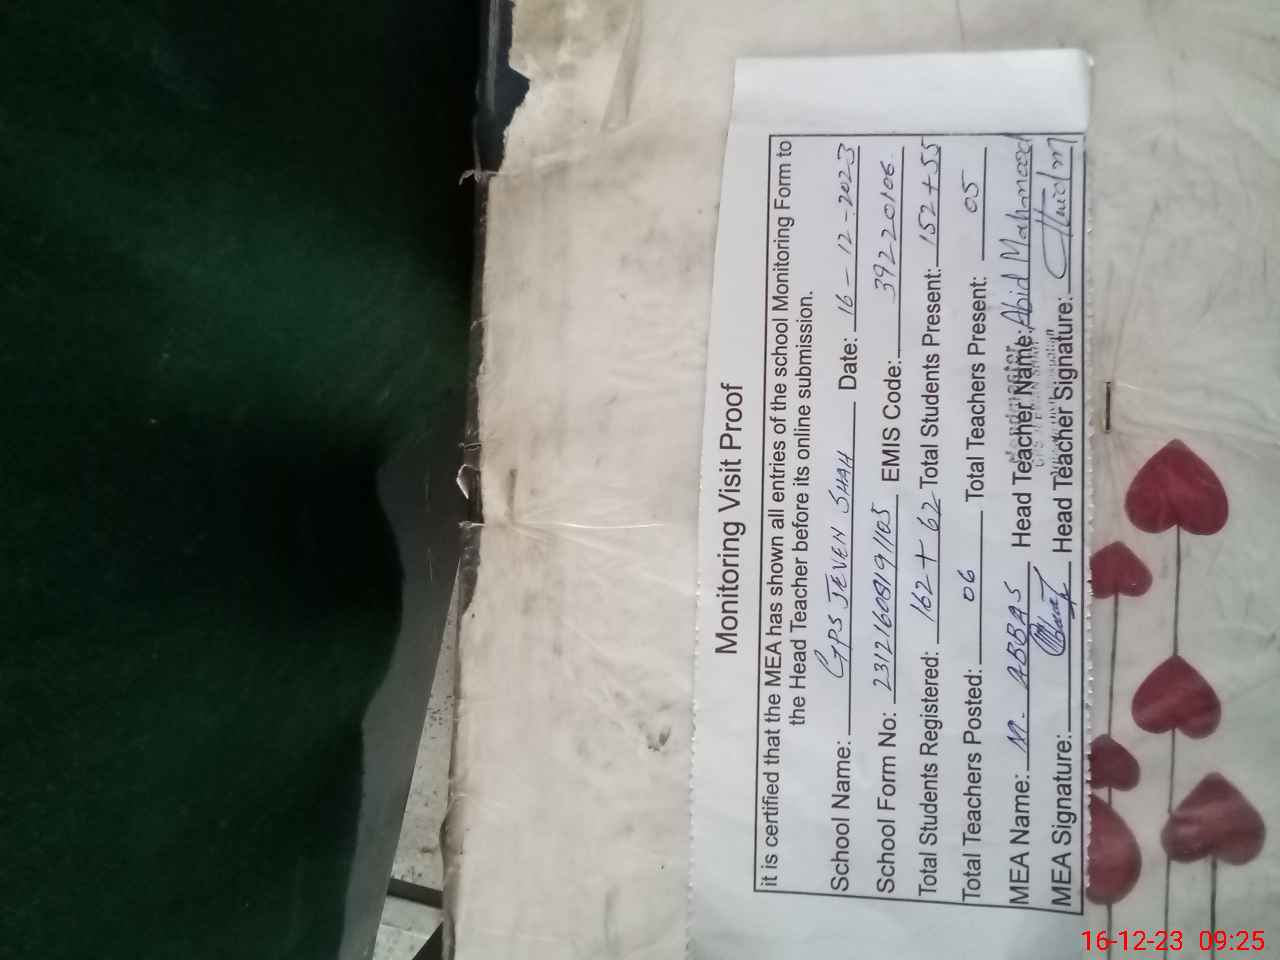 Monitoring Visit Proof
it is certified that the MEA has shown all entries of the school Monitoring Form to
the Head Teacher before its online submission.
School Name: GPS JEVEN SHAH Date: 16-12-2023
School Form No: 23121608191105 EMIS Code: 39220106
Total Students Registered: 162+62 Total Students Present: 152+55
Total Teachers Posted: 06 Total Teachers Present: 05
MEA Name: M. ABBAS Head Teacher Name: Abid Mahmood
MEA Signature: Head Teacher Signature:
16-12-23 09:25